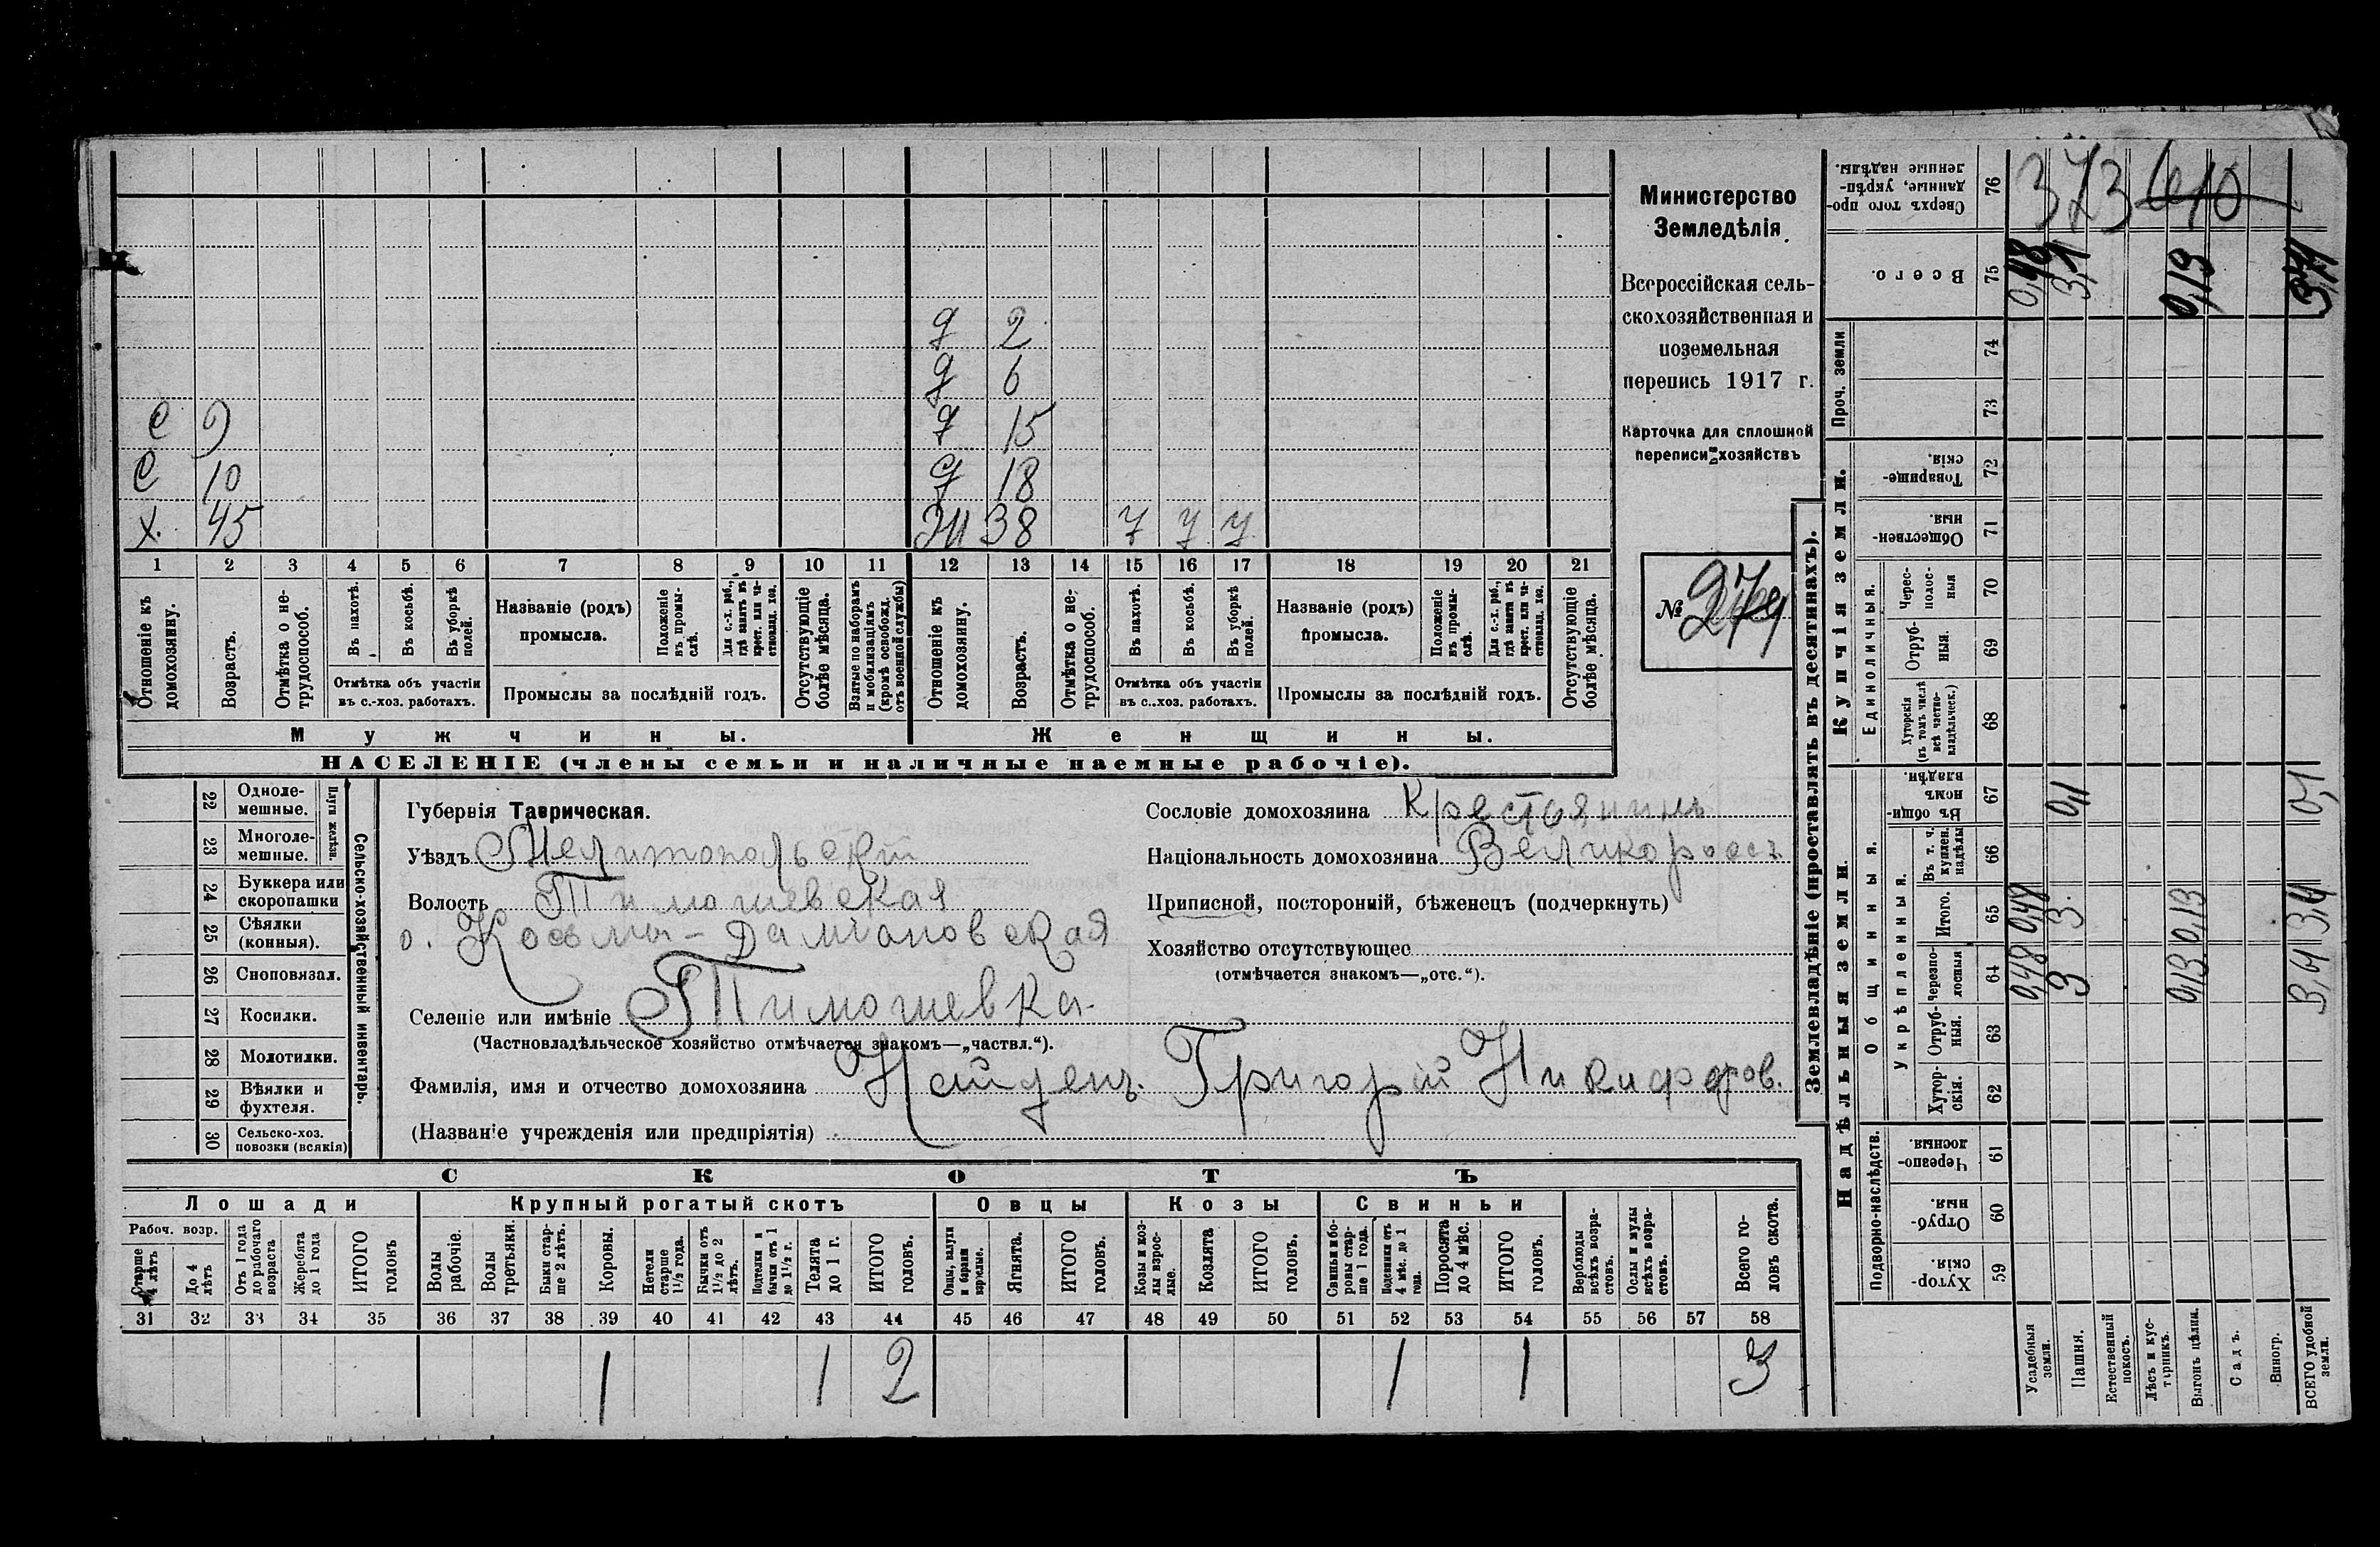 д 2
д 6
с 9 д 15
с 10 д 18
х. 45 Ж 38 7 7 7
1 2 3 4 5 6 7 8 9 10 11 12 13 14 15 16 17 18 19 20 21
Отношеніе къ домохозяину.
Возрастъ.
Отмѣтка о нетрудоспособ.
Въ пахотѣ.
Въ косьбѣ.
Въ уборкѣ полей.
Отмѣтка объ участіи
въ с.-хоз. работахъ.
Названіе (родъ)
промысла.
Положеніе въ промыслѣ.
Для с.-х. раб., гдѣ занятъ въ крест. или частновлад. хоз.
Промыслы за послѣдній годъ.
Отсутствующіе болѣе мѣсяца.
Взятые по наборамъ и мобилизаціямъ (кромѣ освобожд. отъ военной службы)
Отношеніе къ домохозяину.
Возрастъ.
Отмѣтка о нетрудоспособ.
Въ пахотѣ.
Въ косьбѣ.
Въ уборкѣ полей.
Отмѣтка объ участіи
въ с.-хоз. работахъ.
Названіе (родъ)
промысла.
Положеніе въ промыслѣ.
Для с.-х. раб., гдѣ занята въ крест. или частновлад. хоз.
Промыслы за послѣдній годъ.
Отсутствующіе болѣе мѣсяца.
Мужчины. Женщины.
НАСЕЛЕНІЕ (члены семьи и наличные наемные рабочіе).
Министерство
Земледѣлія
Всероссійская сель-
скохозяйственная и
поземельная
перепись 1917 г.
Карточка для сплошной
переписи хозяйствъ
№ 279
22 Одноле-
мешные.
23 Многоле-
мешные.
Плуги желѣзн.
24 Буккера или
скоропашки
25 Сѣялки
(конныя).
26 Сноповязал.
27 Косилки.
28 Молотилки.
29 Вѣялки и
фухтеля.
30 Сельско-хоз.
повозки (всякія)
Сельско-хозяйственный инвентарь.
Губернія Таврическая.
Уѣздъ Мелитопольскій
Волость Тимошевская
о. Косьмы-Даміановская
Селеніе или имѣніе Тимошевка
(Частновладѣльческое хозяйство отмѣчается знакомъ—„частвл.“).
Фамилія, имя и отчество домохозяина Найденъ Григорій Никифоров.
(Названіе учрежденія или предпріятія)
Сословіе домохозяина Крестьянинъ
Національность домохозяина Великороссъ
Приписной, посторонній, бѣженецъ (подчеркнуть)
Хозяйство отсутствующее
(отмѣчается знакомъ—„отс.“).
СКОТЪ
Лошади Крупный рогатый скотъ Овцы Козы Свиньи
Рабоч. возр.
Старше 4 лѣтъ
До 4 лѣтъ
Отъ 1 года до рабочаго возраста
Жеребята до 1 года
ИТОГО головъ
Волы рабочіе.
Волы третьяки.
Быки старше 2 лѣтъ.
Коровы.
Нетели старше 1½ года.
Бычки отъ 1½ до 2 лѣтъ.
Подтелки и бычки отъ 1 до 1½ г.
Телята до 1 г.
ИТОГО головъ.
Овцы, валухи и бараны взрослые.
Ягнята.
ИТОГО головъ.
Козы и козлы взрослые.
Козлята
ИТОГО головъ.
Свиньи и боровы старше 1 года.
Подсвинки отъ 4 мѣс. до 1 года.
Поросята до 4 мѣс.
ИТОГО головъ.
Верблюды всѣхъ возрастовъ.
Ослы и мулы всѣхъ возрастовъ.
Всего головъ скота.
31 32 33 34 35 36 37 38 39 40 41 42 43 44 45 46 47 48 49 50 51 52 53 54 55 56 57 58
1 1 2 1 1 3
Землевладѣніе (проставлять въ десятинахъ).
Надѣльныя земли. Купчія земли. Проч. земли
Подворно-наслѣдств.
Общинныя.
Укрѣпленныя.
Единоличныя.
Хуторскія. 59
Отрубныя. 60
Черезполосныя. 61
Хуторскія. 62
Отрубныя. 63
Черезполосныя 64
Итого. 65
Въ т. ч. куплен. надѣлы 66
Въ общинномъ владѣн. 67
Хуторскія (въ томъ числѣ всѣ частновладѣльческ.) 68
Отрубныя. 69
Чересполосныя 70
Общественныя. 71
Товарищескія. 72
73
74
Всего. 75
Сверхъ того проданные, укрѣпленные надѣлы. 76
Усадебныя земли. 0,48 0,48 0,48
Пашня. 3 3 0,1 3,1
Естественный покосъ.
Лѣсъ и кустарникъ.
Выгонъ цѣлин. 0,13 0,13 0,13
Садъ.
Виногр.
ВСЕГО удобной земли. 0,1
373